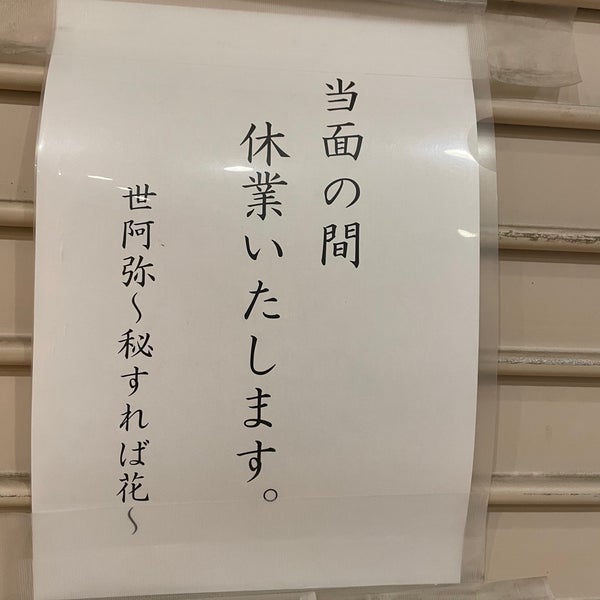 当面の間
休業いたします。
世阿弥～秘すれば花～